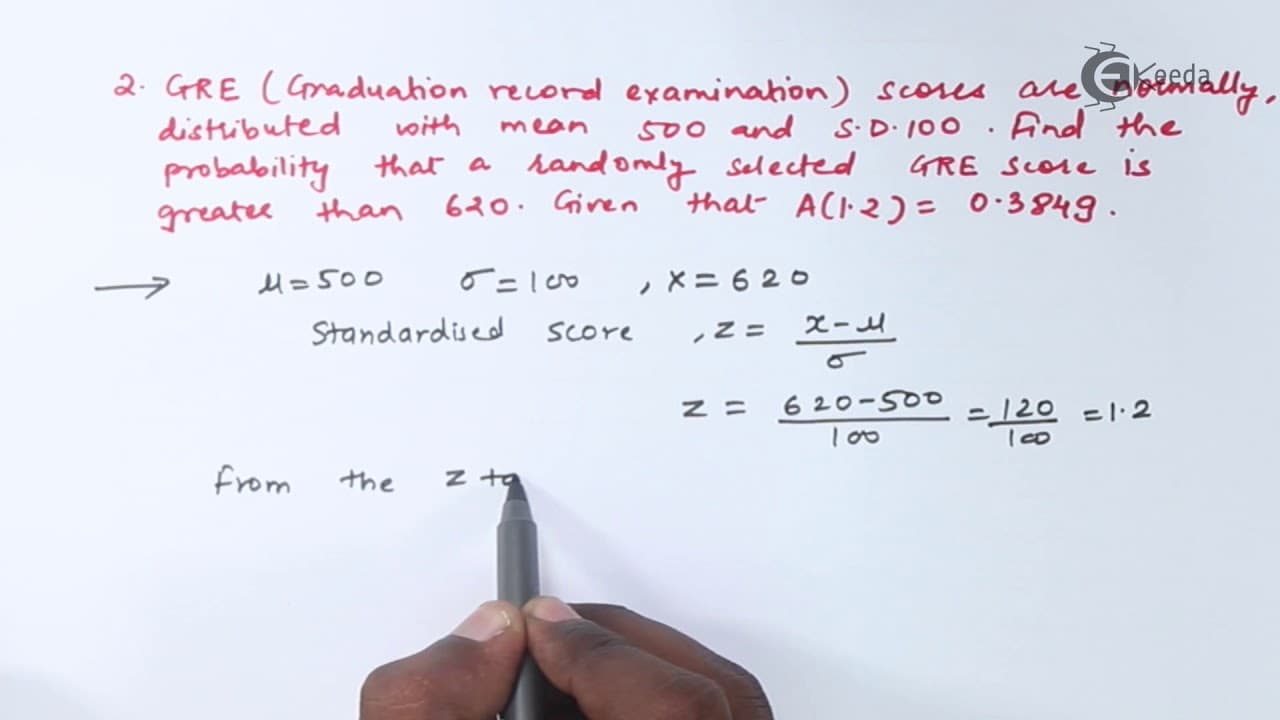 2. GRE (Graduation record examination) scores are normally,
distributed with mean 500 and S.D.100. Find the
probability that a randomly selected GRE score is
greater than 620. Given that A(1.2) = 0.3849.
→ μ=500 σ=100 , x=620
Standardised score , z = x-μ / σ
z = 620-500 / 100 = 120 / 100 = 1.2
from the z ta